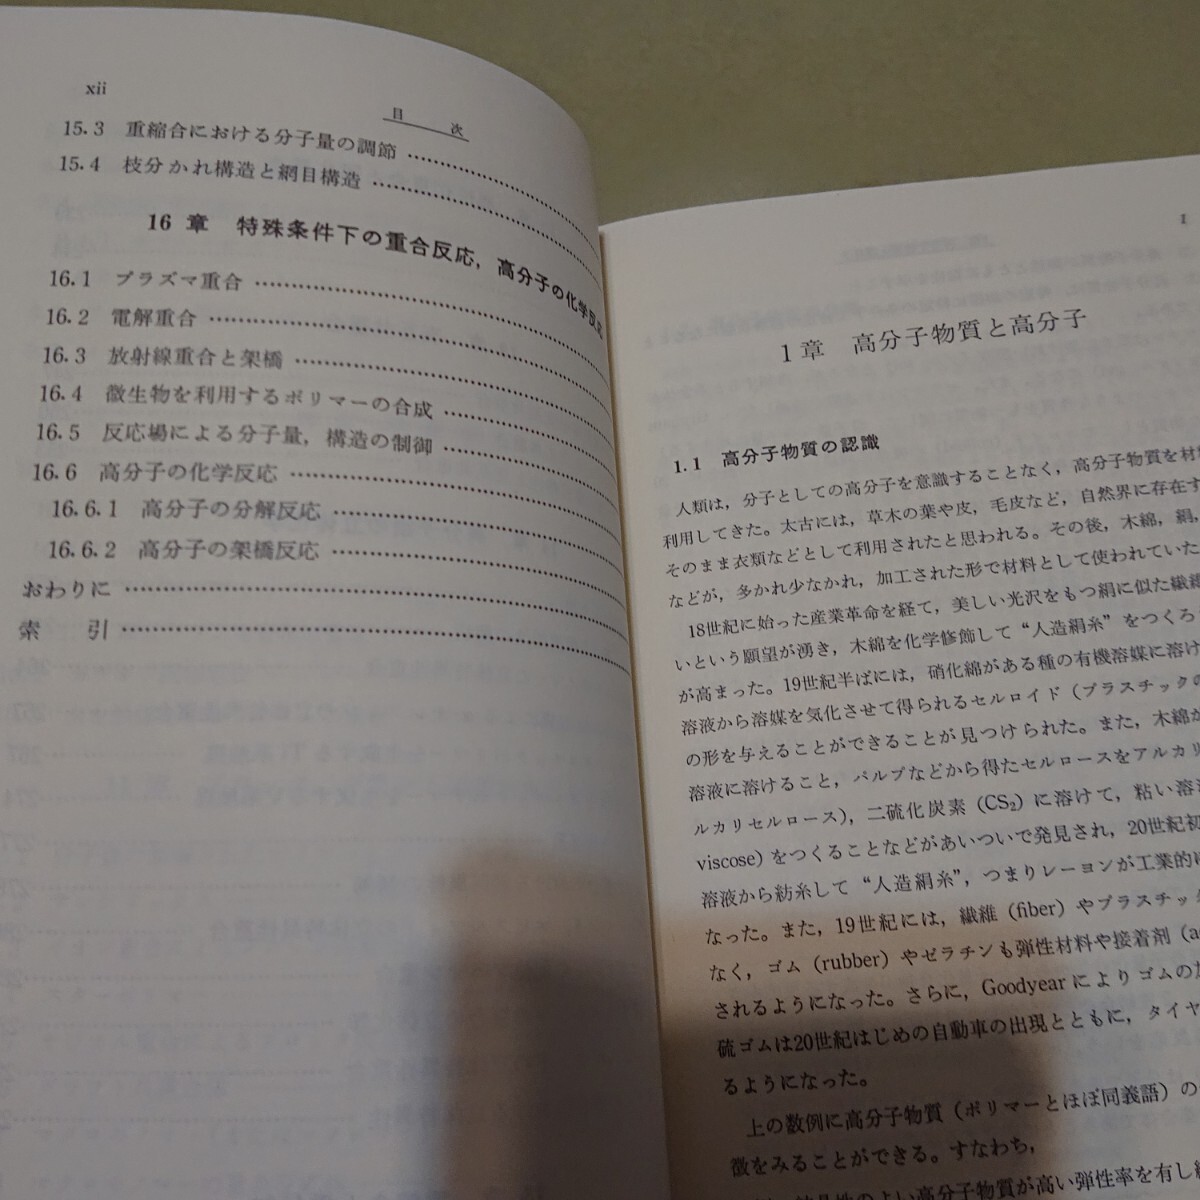 xii
目 次
15.3 重縮合における分子量の調節
15.4 枝分かれ構造と網目構造
16 章 特殊条件下の重合反応，高分子の化学反応
16.1 プラズマ重合
16.2 電解重合
16.3 放射線重合と架橋
16.4 微生物を利用するポリマーの合成
16.5 反応場による分子量，構造の制御
16.6 高分子の化学反応
16.6.1 高分子の分解反応
16.6.2 高分子の架橋反応
おわりに
索 引
1
1章 高分子物質と高分子
1.1 高分子物質の認識
人類は，分子としての高分子を意識することなく，高分子物質を材
利用してきた。太古には，草木の葉や皮，毛皮など，自然界に存在す
そのまま衣類などとして利用されたと思われる。その後，木綿，絹，
などが，多かれ少なかれ，加工された形で材料として使われていた
18世紀に始った産業革命を経て，美しい光沢をもつ絹に似た繊維
いという願望が湧き，木綿を化学修飾して“人造絹糸”をつくろ
が高まった。19世紀半ばには，硝化綿がある種の有機溶媒に溶け
溶液から溶媒を気化させて得られるセルロイド（プラスチックの
の形を与えることができることが見つけられた。また，木綿が
溶液に溶けること，パルプなどから得たセルロースをアルカリ
ルカリセルロース），二硫化炭素（CS₂）に溶けて，粘い溶
viscose）をつくることなどがあいついで発見され，20世紀初
溶液から紡糸して“人造絹糸”，つまりレーヨンが工業的に
なった。また，19世紀には，繊維（fiber）やプラスチック
なく，ゴム（rubber）やゼラチンも弾性材料や接着剤（a
されるようになった。さらに，Goodyearによりゴムの加
硫ゴムは20世紀はじめの自動車の出現とともに，タイヤ
るようになった。
上の数例に高分子物質（ポリマーとほぼ同義語）の
徴をみることができる。すなわち，
のよい高分子物質が高い弾性率を有し